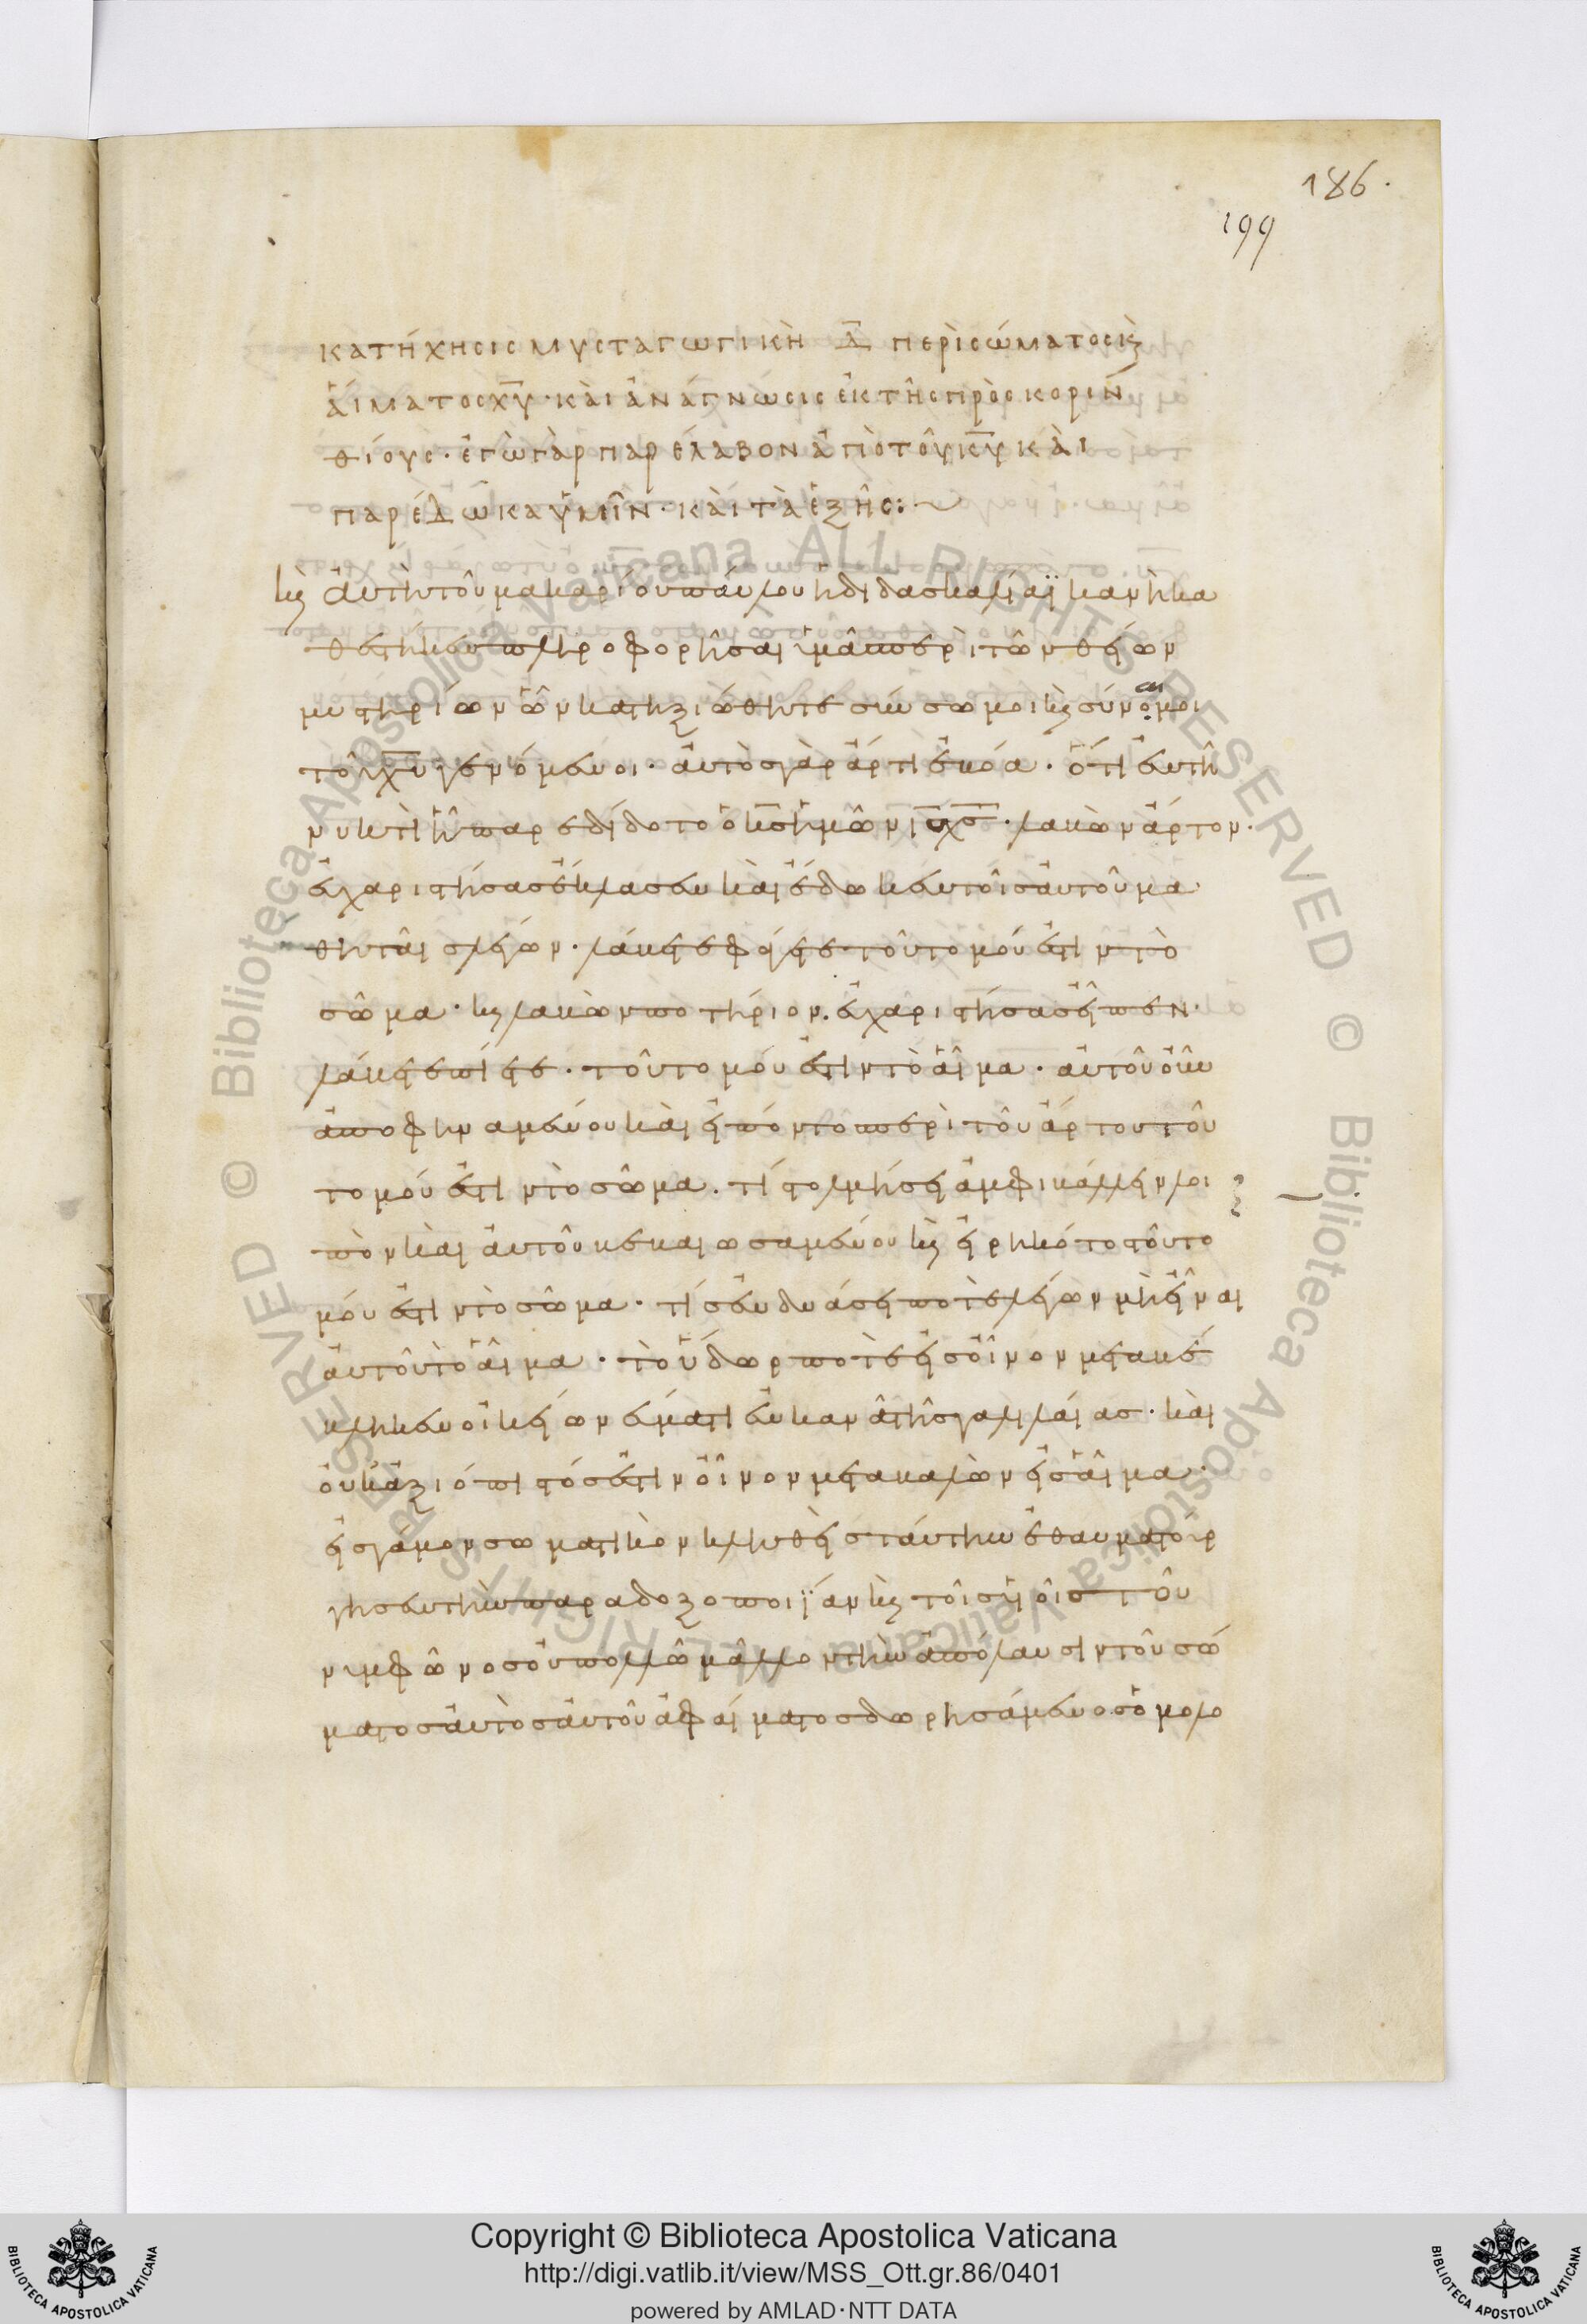 186.
199
κατήχησις μυσταγωγικὴ Δ̅ περὶ σώματος κ̀
ἅιματος χ̅υ̅· κὰι ἀνάγνωσις ἐκ τῆς πρὸς κοριν
θίους· ἐγὼ γὰρ παρέλαβον ἀπὸ τοῦ κ̅υ̅ κὰι
παρέδωκα ὑμῖν· κὰι τὰ ἑξῆς:~
κ̀ ἀυτὴ τοῦ μακαρίου παύλου ἡ διδασκαλία ϊκανὴ κα
θέστηκεν πληροφορῆσαι ὑμᾶς περὶ τῶν θείων
μυστηρίων ὧν κατηξιώθητε σύσσωμοι κ̀ σύνομοι
αι
τοῦ χ̅υ̅ γενόμενοι· ἀυτὸς γὰρ ἄρτι ἐβόα· ὅτι ἐν τῆ
νυκτὶ ἧ παρεδίδοτο ὁ κ̅ς̅ ἡμῶν ι̅ς̅ χ̅ς̅· λαβὼν ἄρτον·
ἐυχαριστήσας ἔκλασεν κὰι ἔδωκεν τοῖς ἀυτοῦ μα
θηταῖς λέγων· λάβετε φάγετε τοῦτο μού ἐστιν τὸ
σῶμα· κ̀ λαβὼν ποτήριον. ἐυχαριστήσας εἶπεν·
λάβετε πίετε· τοῦτο μού ἐστιν τὸ ἅιμα· ἀυτοῦ οὖν
ἀποφηναμένου κὰι ἐιπόντος περὶ τοῦ ἄρτου τοῦ
το μού ἐστιν τὸ σῶμα. τίς τολμήσει ἀμφιβάλλειν λοι
πὸν κὰι ἀυτοῦ βεβαιωσαμένου κ̀ ἐιρηκότος τοῦτο
μού ἐστιν τὸ σῶμα· τίς ἐνδυάσει ποτὲ λέγων μὴ εἶναι
ἀυτοῦ τὸ ἅιμα· τὸ ὕδωρ ποτὲ εἰς οἶνον μεταβέ
βληκεν οἰκείω νεύματι ἐν κανᾶ τῆς γαλιλάιας· κὰι
ὀυκ ἀξιόπιστός ἐστιν οἶνον μεταβαλὼν εἰς ἅιμα·
εἰς γάμον σωματικὸν κληθεὶς ταύτην ἐθαυματούρ
γησεν τὴν παραδοξοποιΐαν κ̀ τοῖς ὑιοῖς τοῦ
νυμφῶνος οὐ πολλῶ μᾶλλον τὴν ἀπόλαυσιν τοῦ σώ
ματος ἀυτὸς ἀυτοῦ ἀφ αἵματος δωρησάμενος ὁμολο
Copyright © Biblioteca Apostolica Vaticana
http://digi.vatlib.it/view/MSS_Ott.gr.86/0401
powered by AMLAD·NTT DATA
BIBLIOTECA APOSTOLICA VATICANA
BIBLIOTECA APOSTOLICA VATICANA
© Biblioteca Apostolica Vaticana ALL RIGHTS RESERVED
© Biblioteca Apostolica Vaticana ALL RIGHTS RESERVED